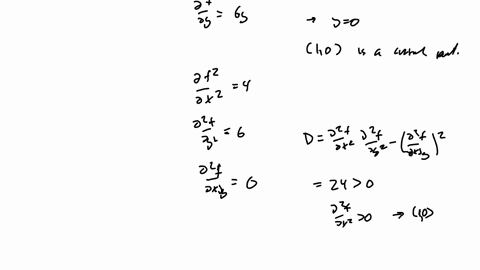 ∂f/∂y = 6y → y=0
(1,0) is a critical point.
∂f²/∂x² = 4
∂²f/∂y² = 6
D = ∂²f/∂x² ∂²f/∂y² - (∂²f/∂x∂y)²
∂²f/∂x∂y = 0
= 24 > 0
∂²f/∂x² > 0 → (1,0)